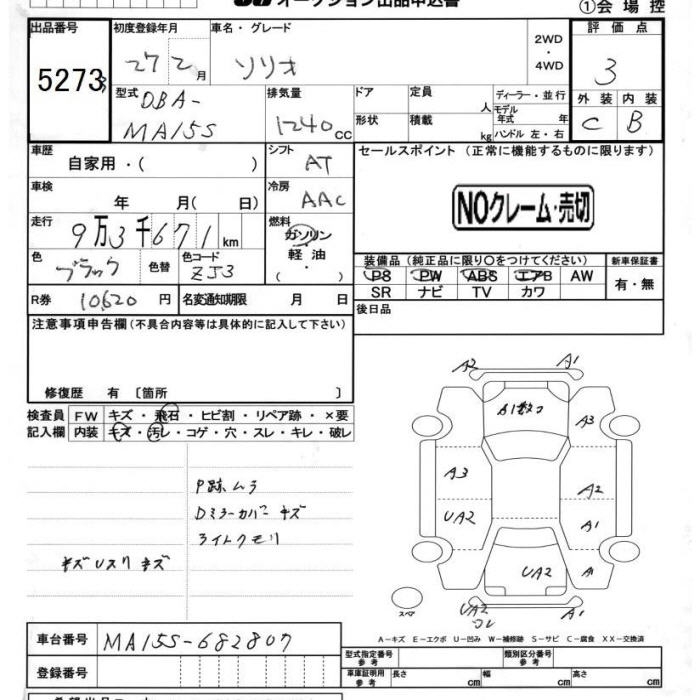 オークション出品申込書
①会場控
出品番号 5273
初度登録年月 27 2月
車名・グレード ソリオ
2WD・4WD
評価点 3
型式 DBA-MA15S
排気量 1240cc
ドア
定員 人
ディーラー・並行
モデル年式 年
形状
積載 kg
ハンドル 左・右
外装 C
内装 B
車歴 自家用・( )
シフト AT
セールスポイント (正常に機能するものに限ります)
車検 年 月( 日)
冷房 AAC
NOクレーム・売切
走行 9万3千671km
燃料 ガソリン 軽油・( )
装備品(純正品に限り○をつけてください)
新車保証書
色 ブラック
色替
色コード ZJ3
PS PW ABS エアB AW
SR ナビ TV カワ
有・無
R券 10620円
名変通知期限 月 日
後日品
注意事項申告欄(不具合内容等は具体的に記入して下さい)
修復歴 有 〔箇所 〕
検査員 FW キズ・飛石・ヒビ割・リペア跡・×要
記入欄 内装 キズ・汚レ・コゲ・穴・スレ・キレ・破レ
A2 A1
A1数コ
A3
A3
A2
UA2
A1
UA2 A1
UA2 コレ A1
スペア
P跡ムラ
Dミラーカバーキズ
ライトクモリ
キズUスリキズ
A-キズ E-エクボ U-凹み W-補修跡 S-サビ C-腐食 XX-交換済
車台番号 MA15S-682807
型式指定番号 参考
類別区分番号 参考
登録番号
車庫証明用 参考 長さ cm 幅 cm 高さ cm